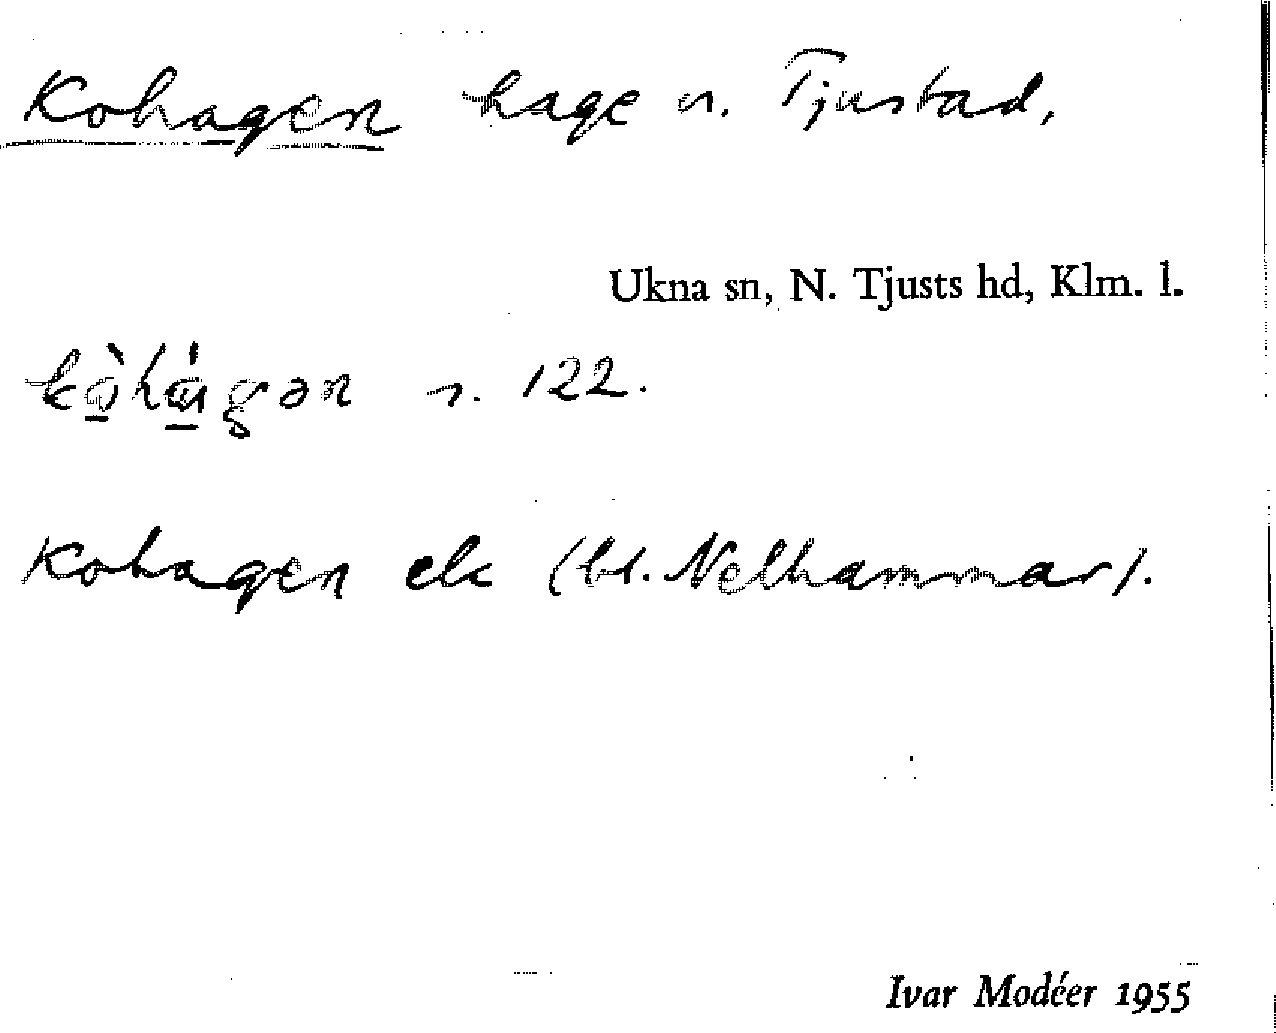 Kohagen hage u. Tjustad,
Ukna sn, N. Tjusts hd, Klm. l.
kò̱há̱gən s. 122.
Kohagen ek (bl. Nelhammar).
Ivar Modéer 1955